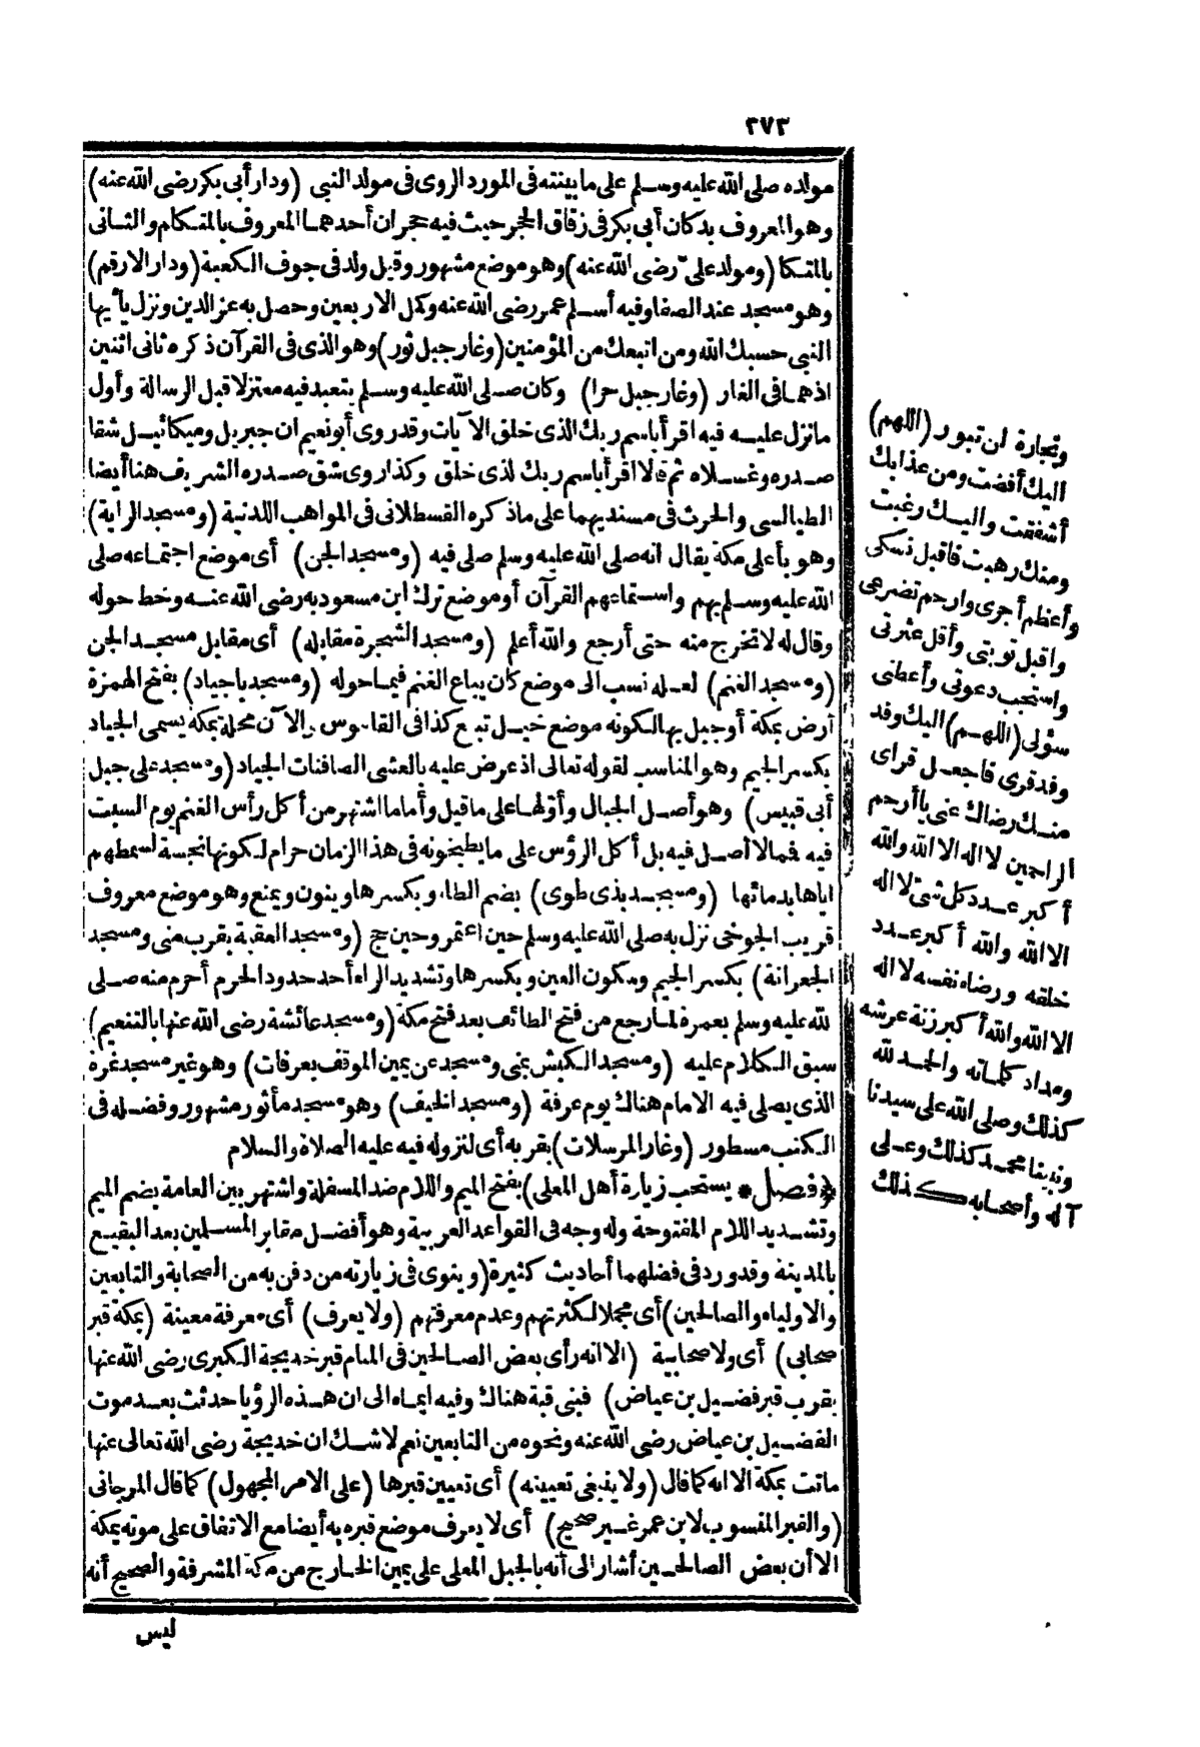 ٢٧٣
مولده صلى الله عليه وسلم على ما بينته فى المورد الروى فى مولد النبى (ودار أبى بكر رضى الله عنه)
وهو المعروف بدكان أبى بكر فى زقاق الحجر حيث فيه حجران أحدهما المعروف بالمتكلم والثانى
بالمتكا (ومولد على رضى الله عنه) وهو موضع مشهور وقيل ولد فى جوف الكعبة (ودار الارقم)
وهو مسجد عند الصفا وفيه أسلم عمر رضى الله عنه وكمل الاربعين وحصل به عز الدين ونزل يأيها
النبى حسبك الله ومن اتبعك من المؤمنين (وغار جبل ثور) وهو الذى فى القرآن ذكره ثانى اثنين
اذ هما فى الغار (وغار جبل حرا) وكان صلى الله عليه وسلم يتعبد فيه معتزلا قبل الرسالة وأول
ما نزل عليه فيه اقرأ باسم ربك الذى خلق الآيات وقد روى أبو نعيم ان جبريل وميكائيل شقا
صدره وغسلاه ثم قالا اقرأ باسم ربك لذى خلق وكذا روى شق صدره الشريف هنا أيضا
الطيالسى والحرث فى مسنديهما على ماذكره القسطلانى فى المواهب اللدنية (ومسجد الراية)
وهو بأعلى مكة يقال انه صلى الله عليه وسلم صلى فيه (ومسجد الجن) أى موضع اجتماعه صلى
الله عليه وسلم بهم واستماعهم القرآن أو موضع ترك ابن مسعود به رضى الله عنه وخط حوله
وقال له لا تخرج منه حتى أرجع والله أعلم (ومسجد الشجرة مقابله) أى مقابل مسجد الجن
(ومسجد الغنم) لعله نسب الى موضع كان يباع الغنم فيما حوله (ومسجد باجياد) بفتح الهمزة
أرض بمكة أو جبل بها لكونه موضع خيل تبع كذا فى القاموس والآن محلة بمكة يسمى الجياد
بكسر الجيم وهو المناسب لقوله تعالى اذ عرض عليه بالعشى الصافنات الجياد (ومسجد على جبل
أبى قبيس) وهو أصل الجبال وأولها على ماقيل وأما ما اشتهر من أكل رأس الغنم يوم السبت
فيه فمما لا أصل فيه بل أكل الرؤس على ما يطبخونه فى هذا الزمان حرام لكونها نجسة لسمطهم
اياها بدمائها (ومسجد بذى طوى) بضم الطاء وبكسرها وينون ويمنع وهو موضع معروف
قريب الجوخى نزل به صلى الله عليه وسلم حين اعتمر وحين حج (ومسجد العقبة بقرب منى ومسجد
الجعرانة) بكسر الجيم وسكون العين وبكسرها وتشديد الراء أحد حدود الحرم أحرم منه صلى
لله عليه وسلم بعمرة لما رجع من فتح الطائف بعد فتح مكة (ومسجد عائشة رضى الله عنها بالتنعيم)
سبق الكلام عليه (ومسجد الكبش بمنى ومسجد عن يمين الموقف بعرفات) وهو غير مسجد نمرة
الذى يصلى فيه الامام هناك يوم عرفة (ومسجد الخيف) وهو مسجد مأثور مشهور وفضله فى
الكتب مسطور (وغار المرسلات) بقربه أى لنزوله فيه عليه الصلاة والسلام
﴿فصل﴾ يستحب زيارة أهل المعلى) بفتح الميم واللام ضد المسفلة واشتهر بين العامة بضم الميم
وتشديد اللام المفتوحة وله وجه فى القواعد العربية وهو أفضل مقابر المسلمين بعد البقيع
بالمدينة وقد ورد فى فضلهما أحاديث كثيرة (وينوى فى زيارته من دفن به من الصحابة والتابعين
والاولياء والصالحين) أى مجملا لكثرتهم وعدم معرفتهم (ولا يعرف) أى معرفة معينة (بمكة قبر
صحابى) أى ولا صحابية (الا انه رأى بعض الصالحين فى المنام قبر خديجة الكبرى رضى الله عنها
بقرب قبر فضيل بن عياض) فبنى قبة هناك وفيه ايماء الى ان هذه الرؤيا حدثت بعد موت
الفضيل بن عياض رضى الله عنه ونحوه من التابعين نعم لا شك ان خديجة رضى الله تعالى عنها
ماتت بمكة الا انه كما قال (ولا ينبغى تعيينه) أى تعيين قبرها (على الامر المجهول) كما قال المرجانى
(والقبر المنسوب لابن عمر غير صحيح) أى لا يعرف موضع قبره به أيضا مع الاتفاق على موته بمكة
الا أن بعض الصالحين أشار الى أنه بالجبل المعلى على يمين الخارج من مكة المشرفة والصحيح أنه
ليس
وتجارة لن تبور (اللهم)
اليك أفضت ومن عذابك
أشفقت واليك رغبت
ومنك رهبت فاقبل نسكى
وأعظم أجرى وارحم تضرعى
واقبل توبتى وأقل عثرتى
واستجب دعوتى وأعطنى
سؤلى (اللهم) اليك وفد
وفد قرى فاجعل قراى
منك رضاك عنى يا أرحم
الراحمين لا اله الا الله والله
أكبر عدد كل شئ لا اله
الا الله والله أكبر عدد
خلقه ورضاء نفسه لا اله
الا الله والله أكبر زنة عرشه
ومداد كلماته والحمد لله
كذلك وصلى الله على سيدنا
ونبينا محمد كذلك وعلى
آله وأصحابه كذلك